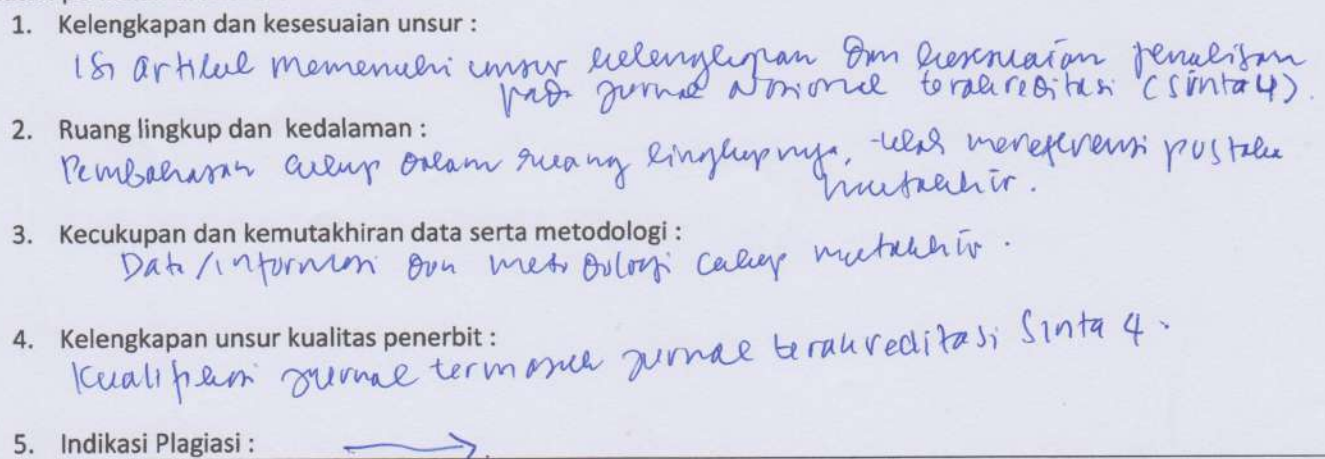 1. Kelengkapan dan kesesuaian unsur :
Isi artikel memenuhi unsur kelengkapan dan kesesuaian penulisan
pada jurnal Nasional terakreditasi (Sinta 4).
2. Ruang lingkup dan kedalaman :
Pembahasan cukup dalam ruang lingkupnya, telah mereferensi pustaka
mutakhir.
3. Kecukupan dan kemutakhiran data serta metodologi :
Data/informasi dan metodologi cukup mutakhir.
4. Kelengkapan unsur kualitas penerbit :
Kualifikasi jurnal termasuk jurnal terakreditasi Sinta 4.
5. Indikasi Plagiasi :